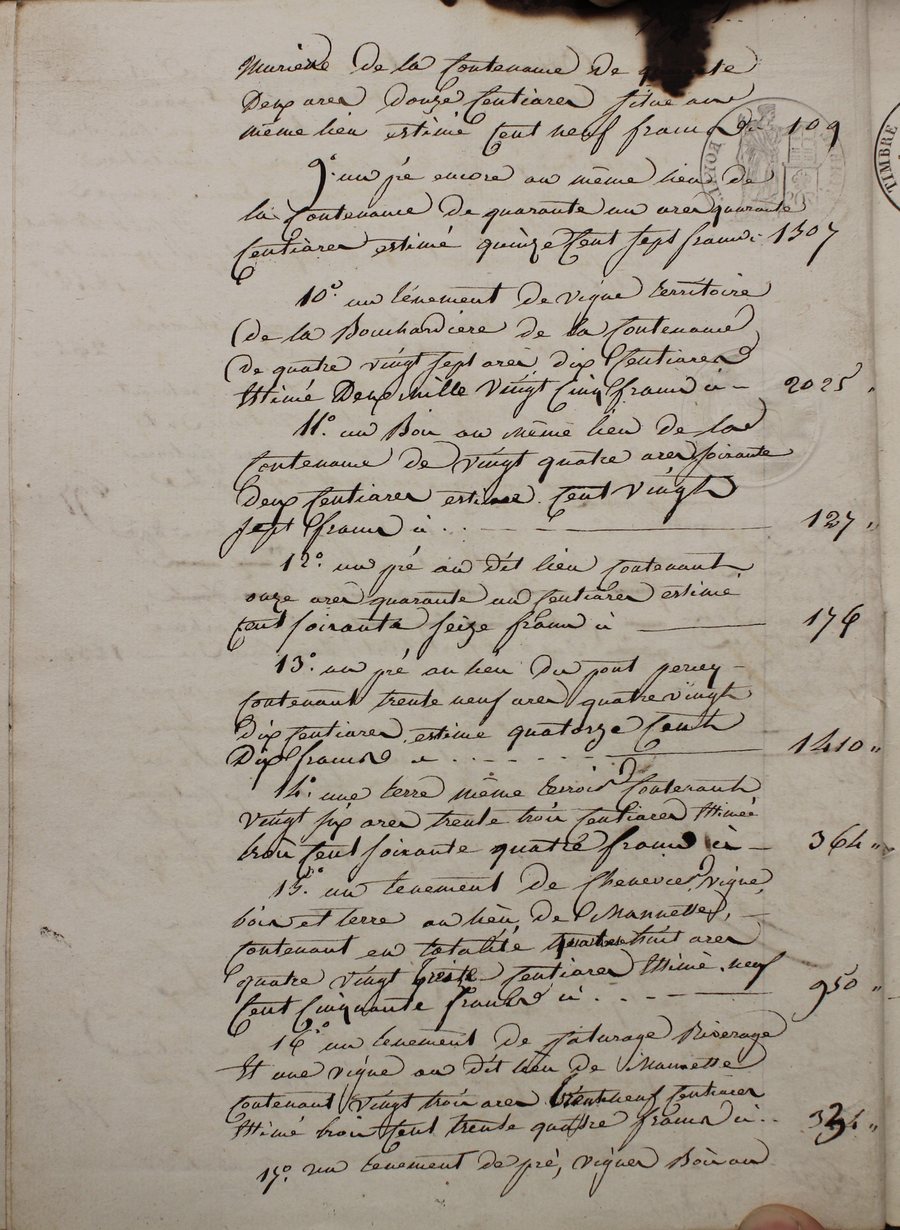 de la Contenance de quarante
Deux ares Douze Centiares situe au
même lieu estimé Cent neuf francs ci 109
9° un pré encore au même lieu de
la Contenance de quarante un ares quarante
Centiares estimé quinze Cent sept francs 1507
10° un ténement de vigne territoire
de la Bouchardiere de la Contenance
de quatre vingt sept ares dix Centiares
Estimé Deux mille vingt Cinq francs ci - 2025 "
11° un Bois au même lieu de la
Contenance de vingt quatre ares soixante
deux Centiares estimé Cent vingt
sept francs ci . . 127 "
12° un pré au dit lieu Contenant
onze ares quarante un Centiares estimé
Cent soixante seize francs ci 176
13° un pré au lieu du pont perrey
Contenant trente neuf ares quatre vingt
dix Centiares estimé quatorze Cent
Dix francs ci . . . . . . 1410 "
14° une terre même terroir Contenant
vingt six ares trente trois Centiares Estimée
trois Cent soixante quatre francs ci - 364 "
15° un tenement de Chenevier, vigne,
bois et terre au lieu de Mannette,
Contenant en totalité huit ares
quatre vingt Centiares Estimé neuf
Cent Cinquante francs ci . . . 950 "
16° un tenement de paturage Riverage
Et une vigne au dit lieu de Mannette
Contenant vingt trois ares neuf Centiares
Estimé trois Cent trente quatre francs ci . . 334 "
17° un tenement de pré, vignes Bois au
TIMBRE